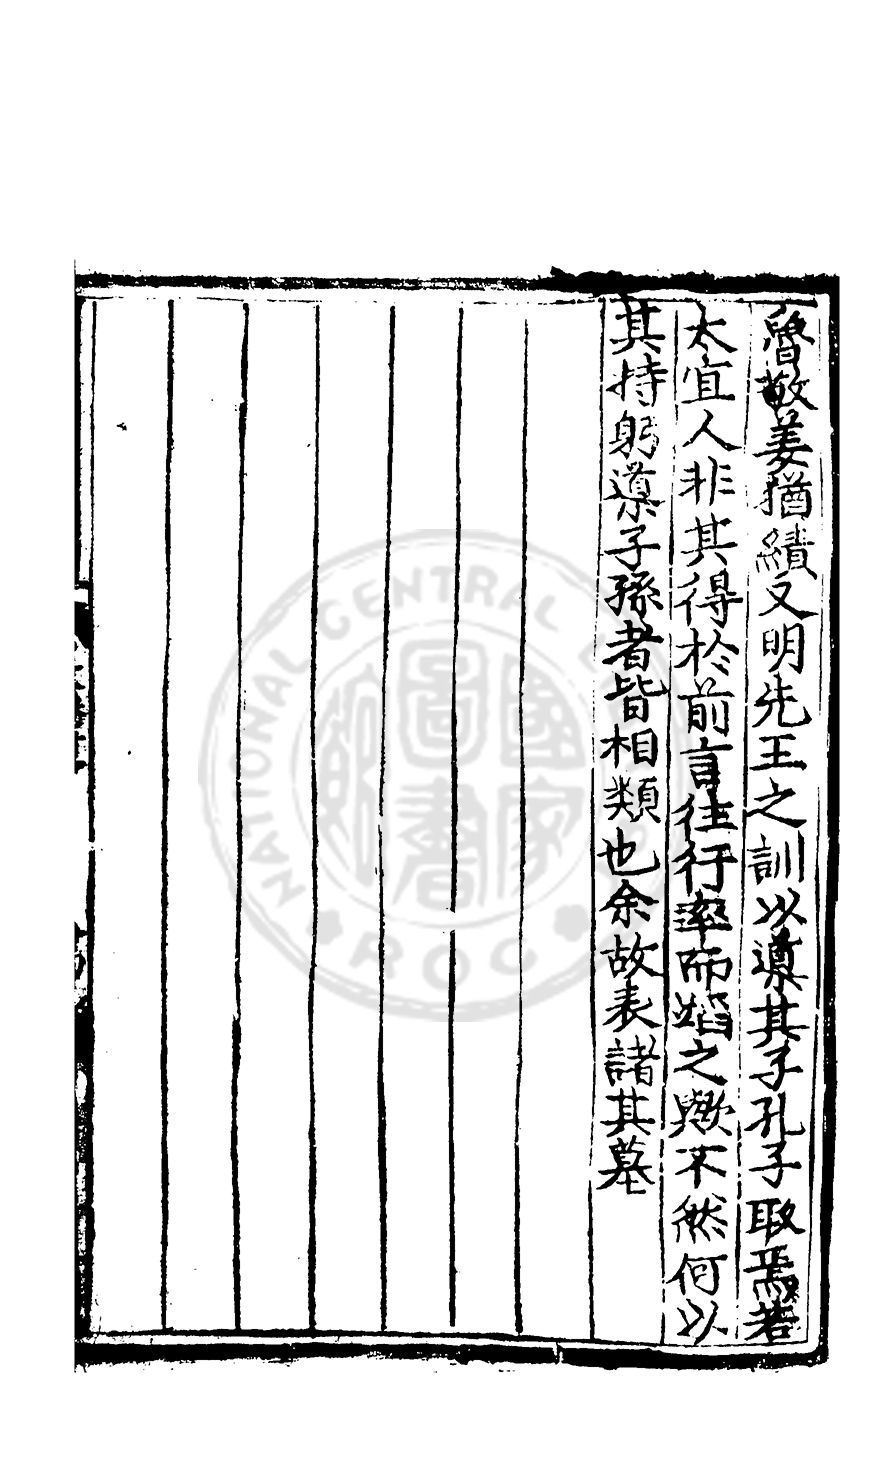 魯敬姜猶績文明先王之訓以導其子孔子取焉若
太宜人非其得於前言往行率而蹈之歟不然何以
其持躬導子孫者皆相類也余故表諸其墓
NATIONAL CENTRAL
ROC
國家圖書館